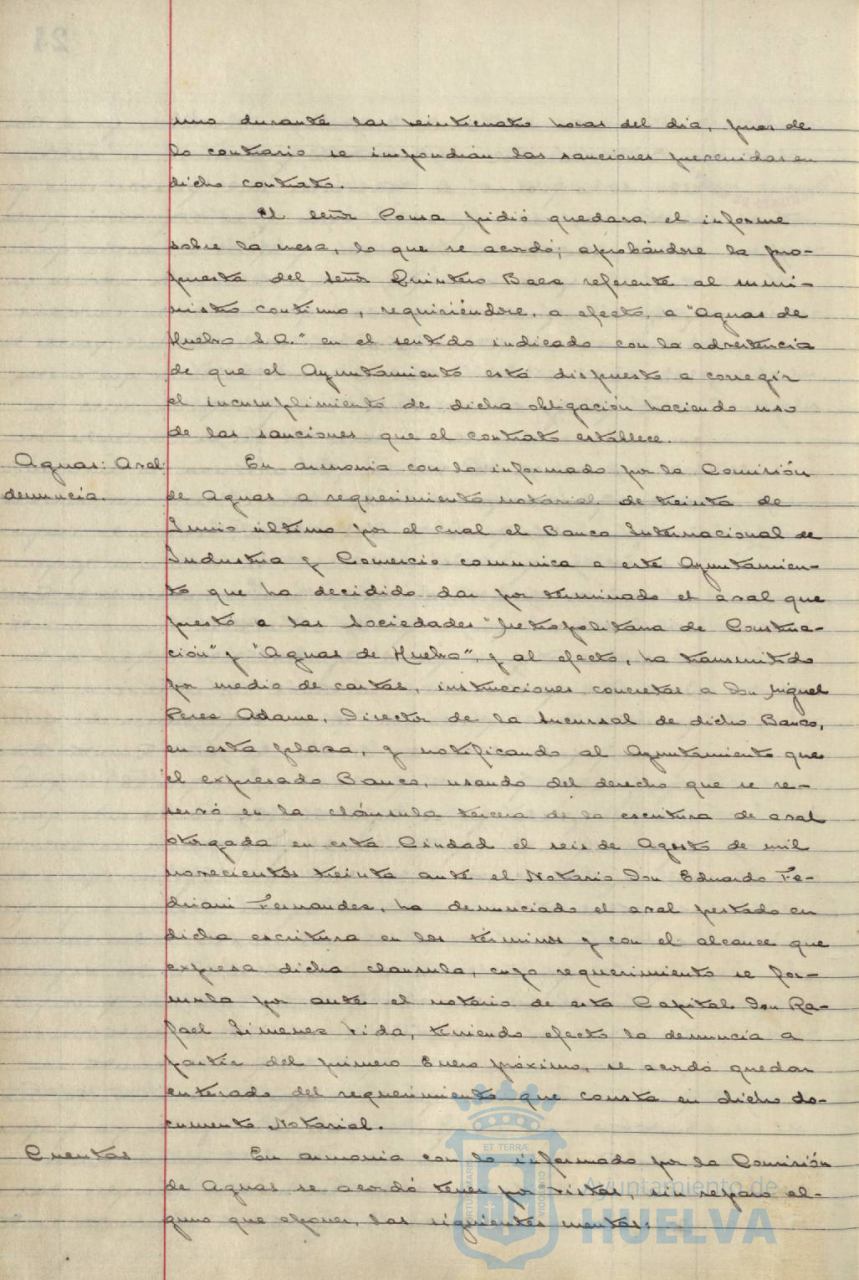 uno durante las veinticuatro horas del dia, pues de
lo contrario se impondrian las sanciones prevenidas en
dicho contrato.
El señor Ponsa pidió quedara el informe
sobre la mesa, lo que se acordó; aprobándose la pro-
puesta del señor Quintero Baez referente al sumi-
nistro continuo, requiriéndose, a efecto, a "Aguas de
Huelva S.A." en el sentido indicado con la advertencia
de que el Ayuntamiento está dispuesto a corregir
el incumplimiento de dicha obligación haciendo uso
de las sanciones que el contrato establece.
Aguas: Aval
denuncia.
En armonia con lo informado por la Comisión
de Aguas a requerimiento notarial de treinta de
Junio último por el cual el Banco Internacional de
Industria y Comercio comunica a este Ayuntamien-
to que ha decidido dar por terminado el aval que
prestó a las Sociedades "Metropolitana de Construc-
ción" y "Aguas de Huelva", y al efecto, ha transmitido
por medio de cartas, instrucciones concretas a Don Miguel
Perez Adame, Director de la Sucursal de dicho Banco,
en esta plaza, y notificando al Ayuntamiento que
el expresado Banco, usando del derecho que se re-
servó en la cláusula tercera de la escritura de aval
otorgada en esta Ciudad el seis de Agosto de mil
novecientos treinta ante el Notario Don Eduardo Fe-
driani Fernandez, ha denunciado el aval prestado en
dicha escritura en los términos y con el alcance que
expresa dicha clausula, cuyo requerimiento se for-
mula por ante el notario de esta Capital Don Ra-
fael Jimenez Vida, teniendo efecto la denuncia a
partir del primero Enero próximo, se acordó quedar
enterado del requerimiento que consta en dicho do-
cumento Notarial.
Cuentas
En armonia con lo informado por la Comisión
de Aguas se acordó tener por vistas, sin reparo al-
guno que oponer, las siguientes cuentas:
Ayuntamiento de
HUELVA